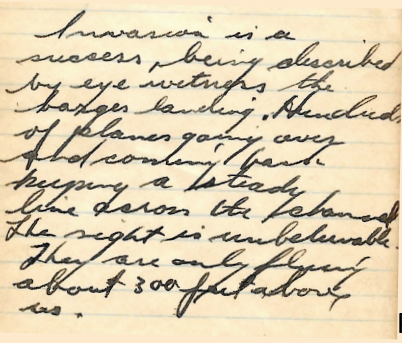 Invasion is a
success, being described
by eye witness the
barges landing. Hundreds
of planes going over
and coming back
keeping a steady
line across the channel
The sight is unbelievable.
They are only flying
about 300 feet above
us.